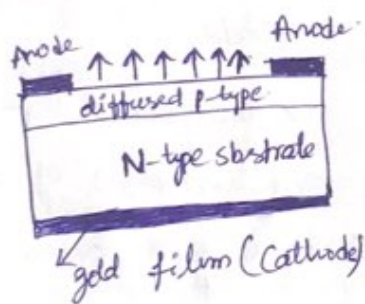 Anode
Anode
diffused p-type
N-type sbstrate
gold film (Cathode)